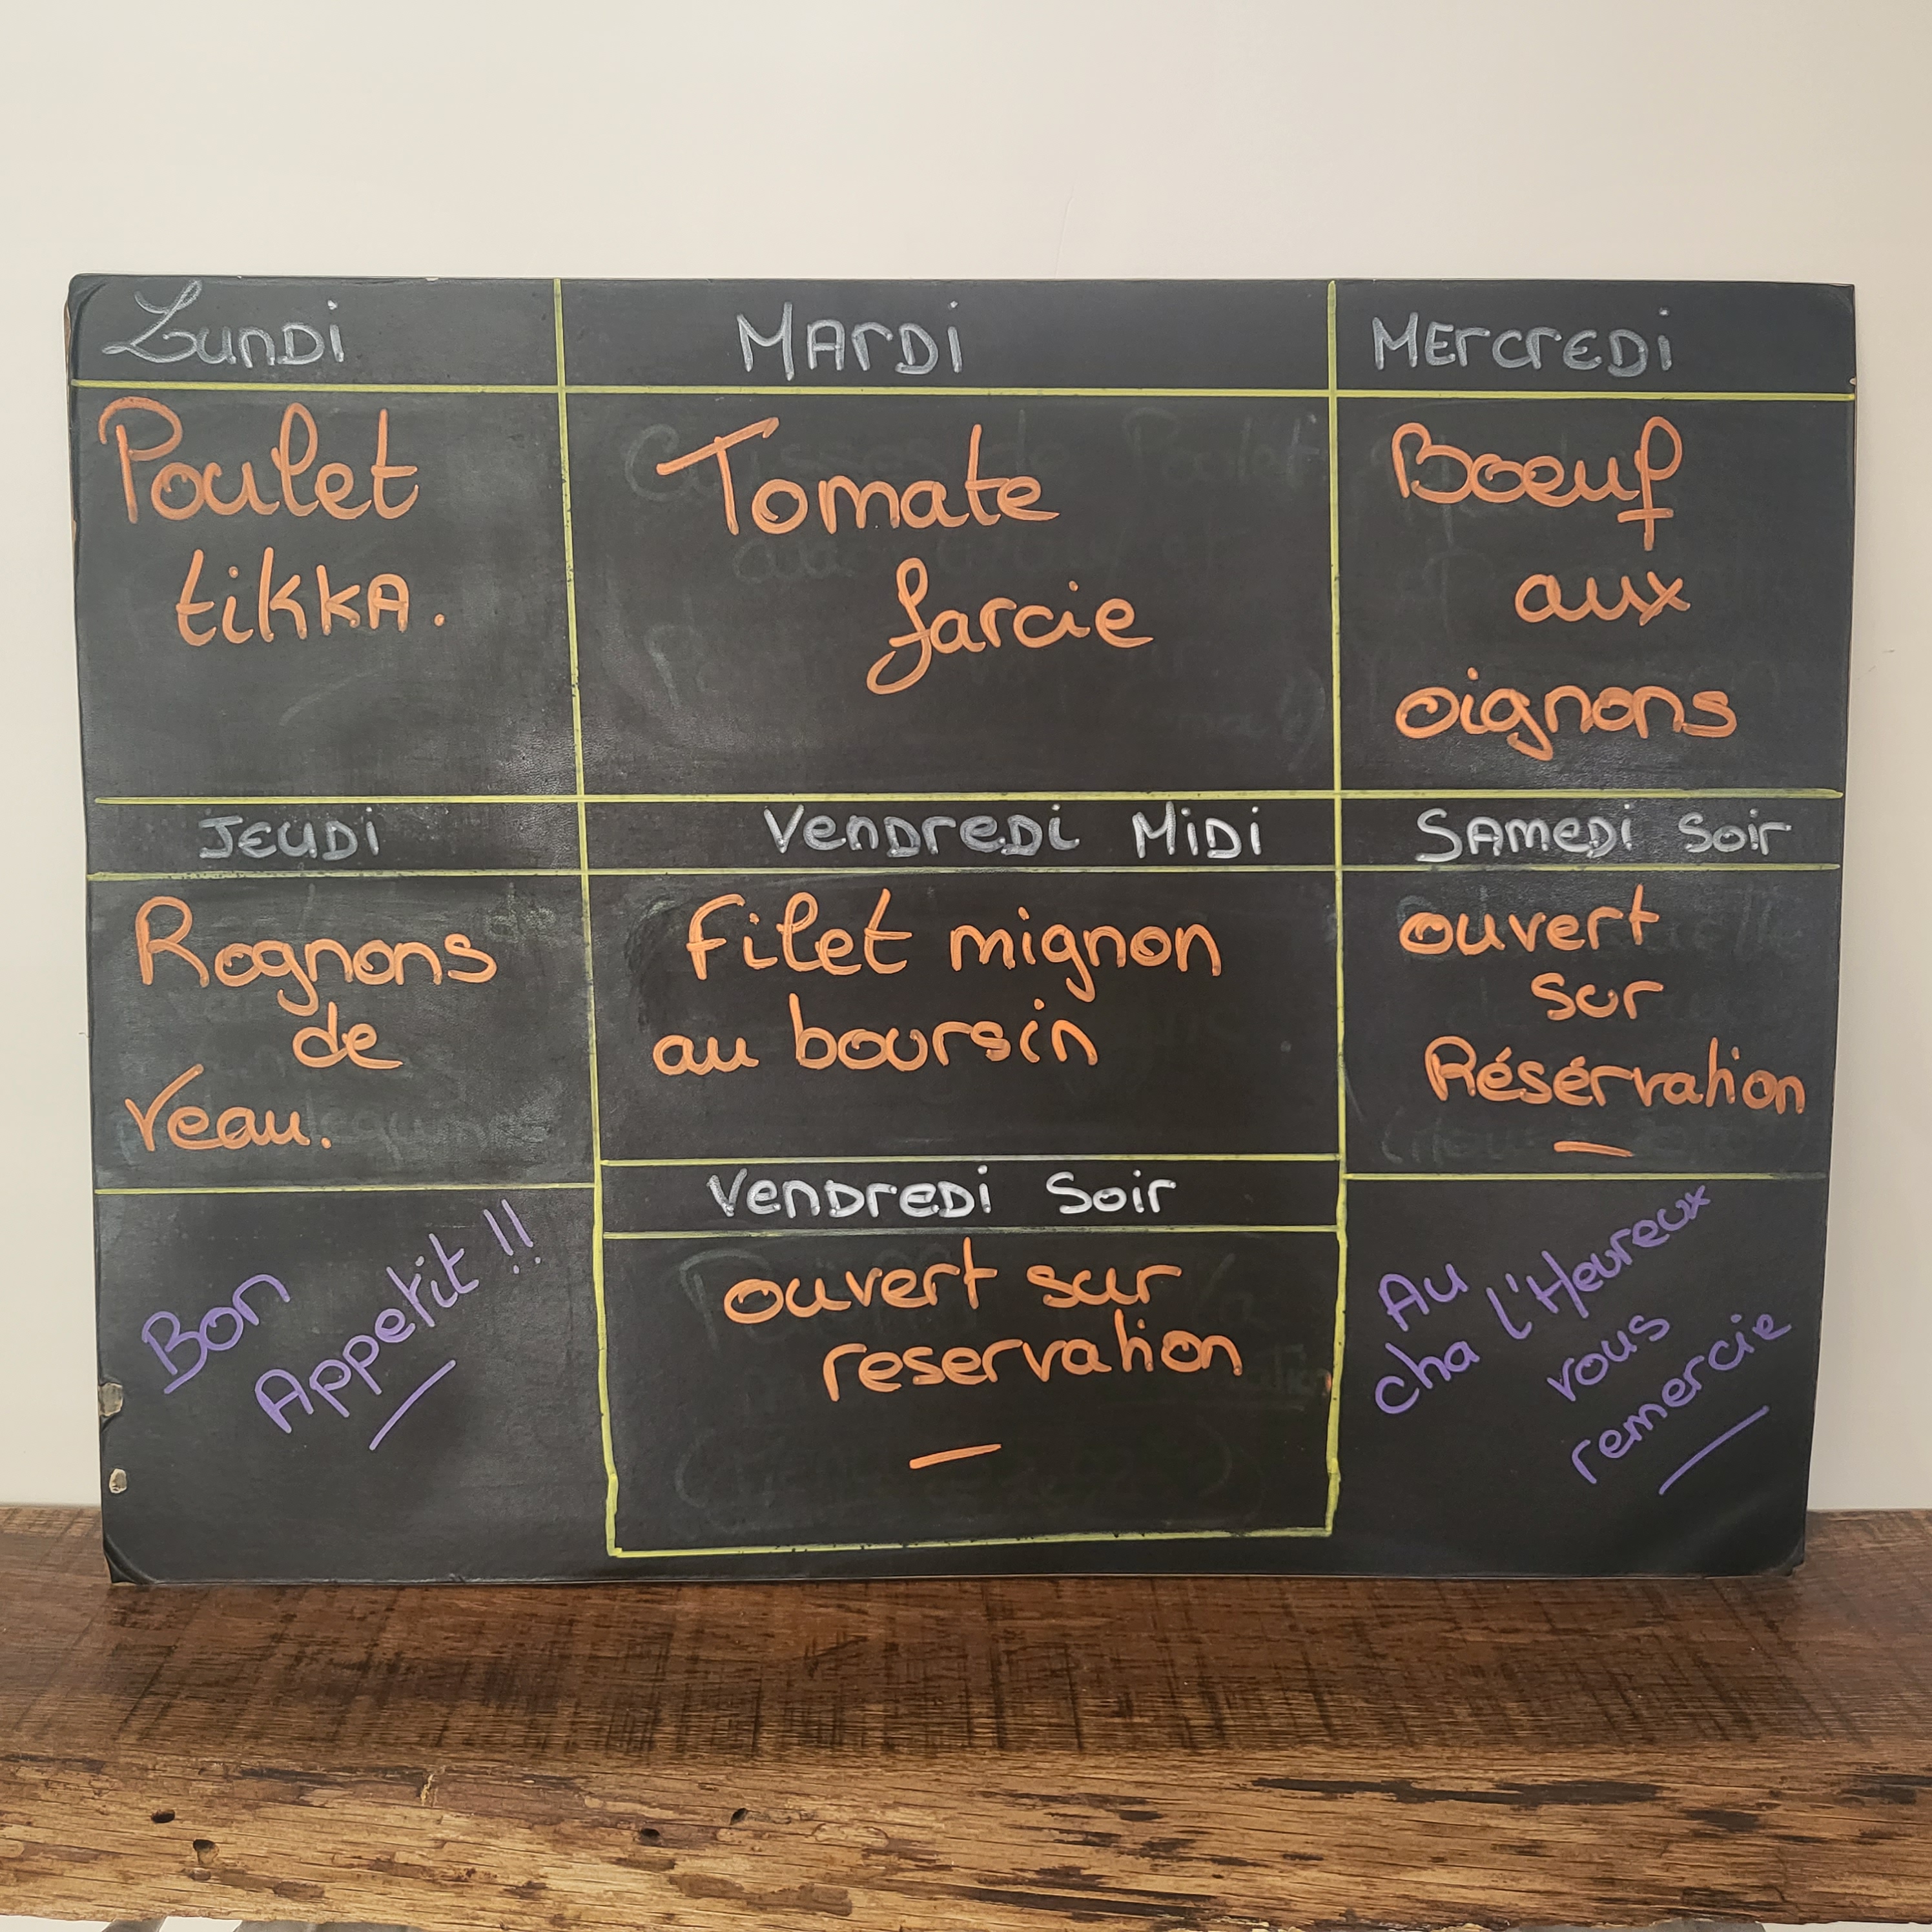 Lundi
Mardi
Mercredi
Poulet
tikka.
Tomate
farcie
Boeuf
aux
oignons
Jeudi
Vendredi Midi
Samedi Soir
Rognons
de
Veau.
Filet mignon
au boursin
ouvert
sur
Résérvation
Vendredi Soir
ouvert sur
reservation
Bon
Appetit !!
Au
cha l'Heureux
vous
remercie